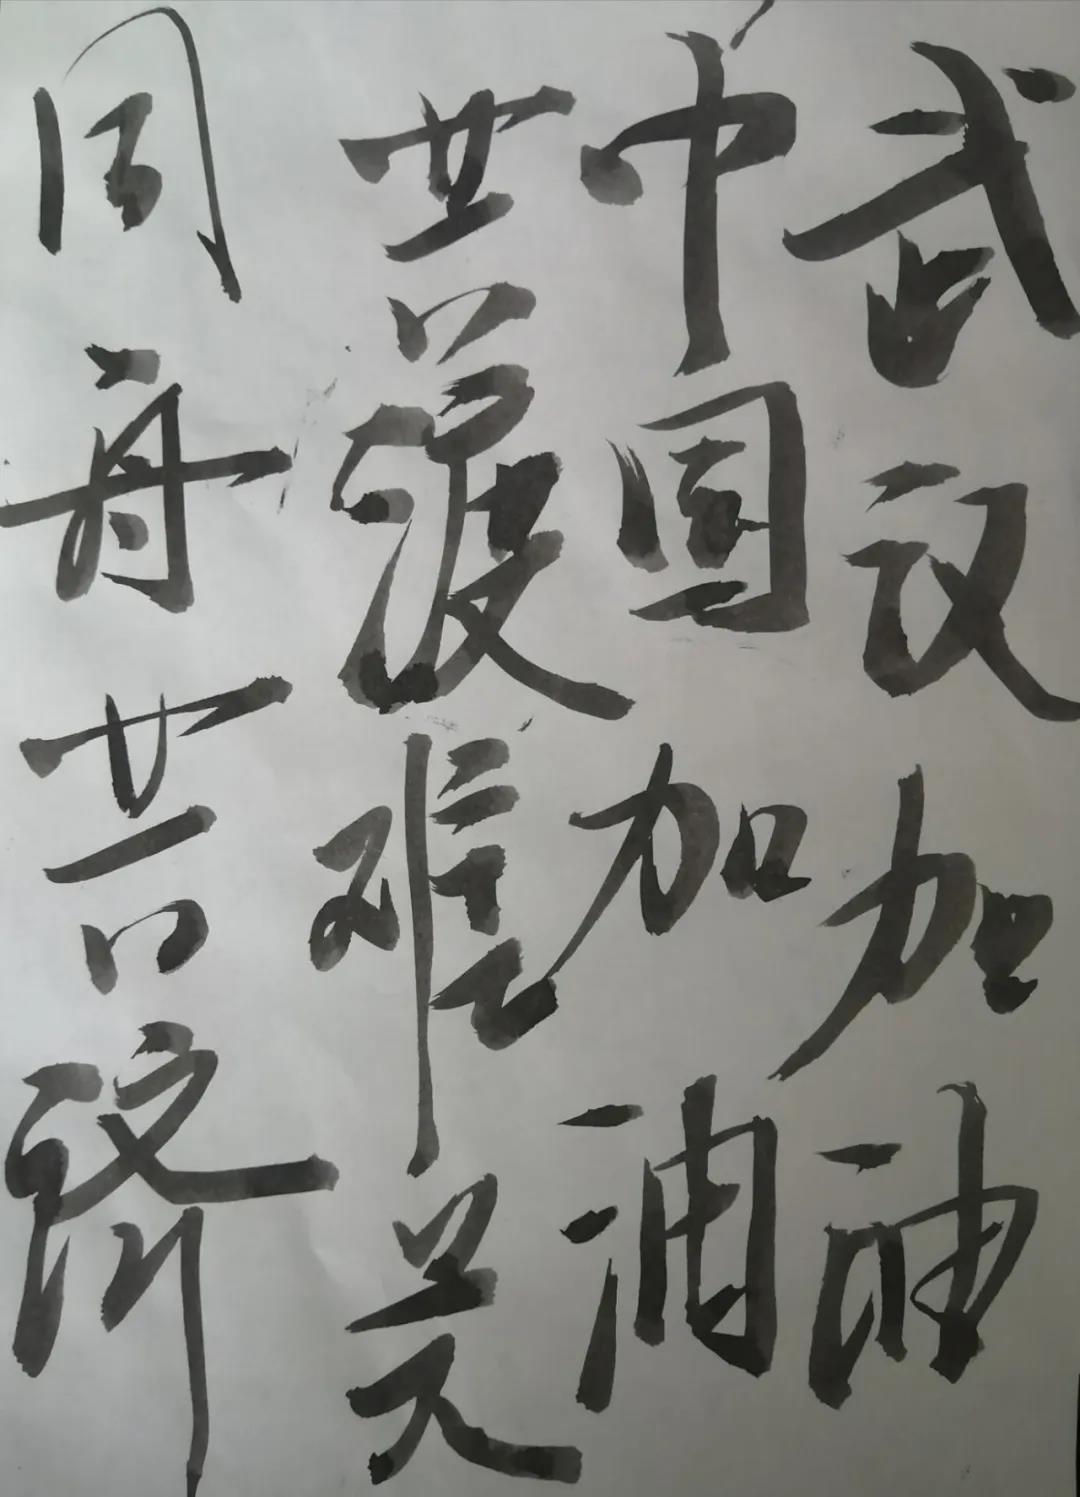 武汉加油
中国加油
共渡难关
同舟共济